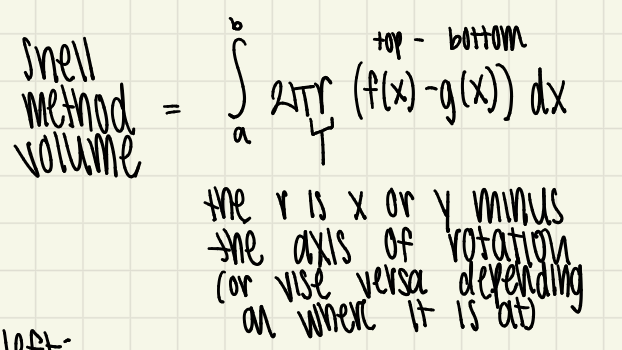 shell
method
volume = ∫ₐᵇ 2πr (f(x) - g(x)) dx
top - bottom
the r is x or y minus
the axis of rotation
(or vise versa depending
on where it is at)
left-